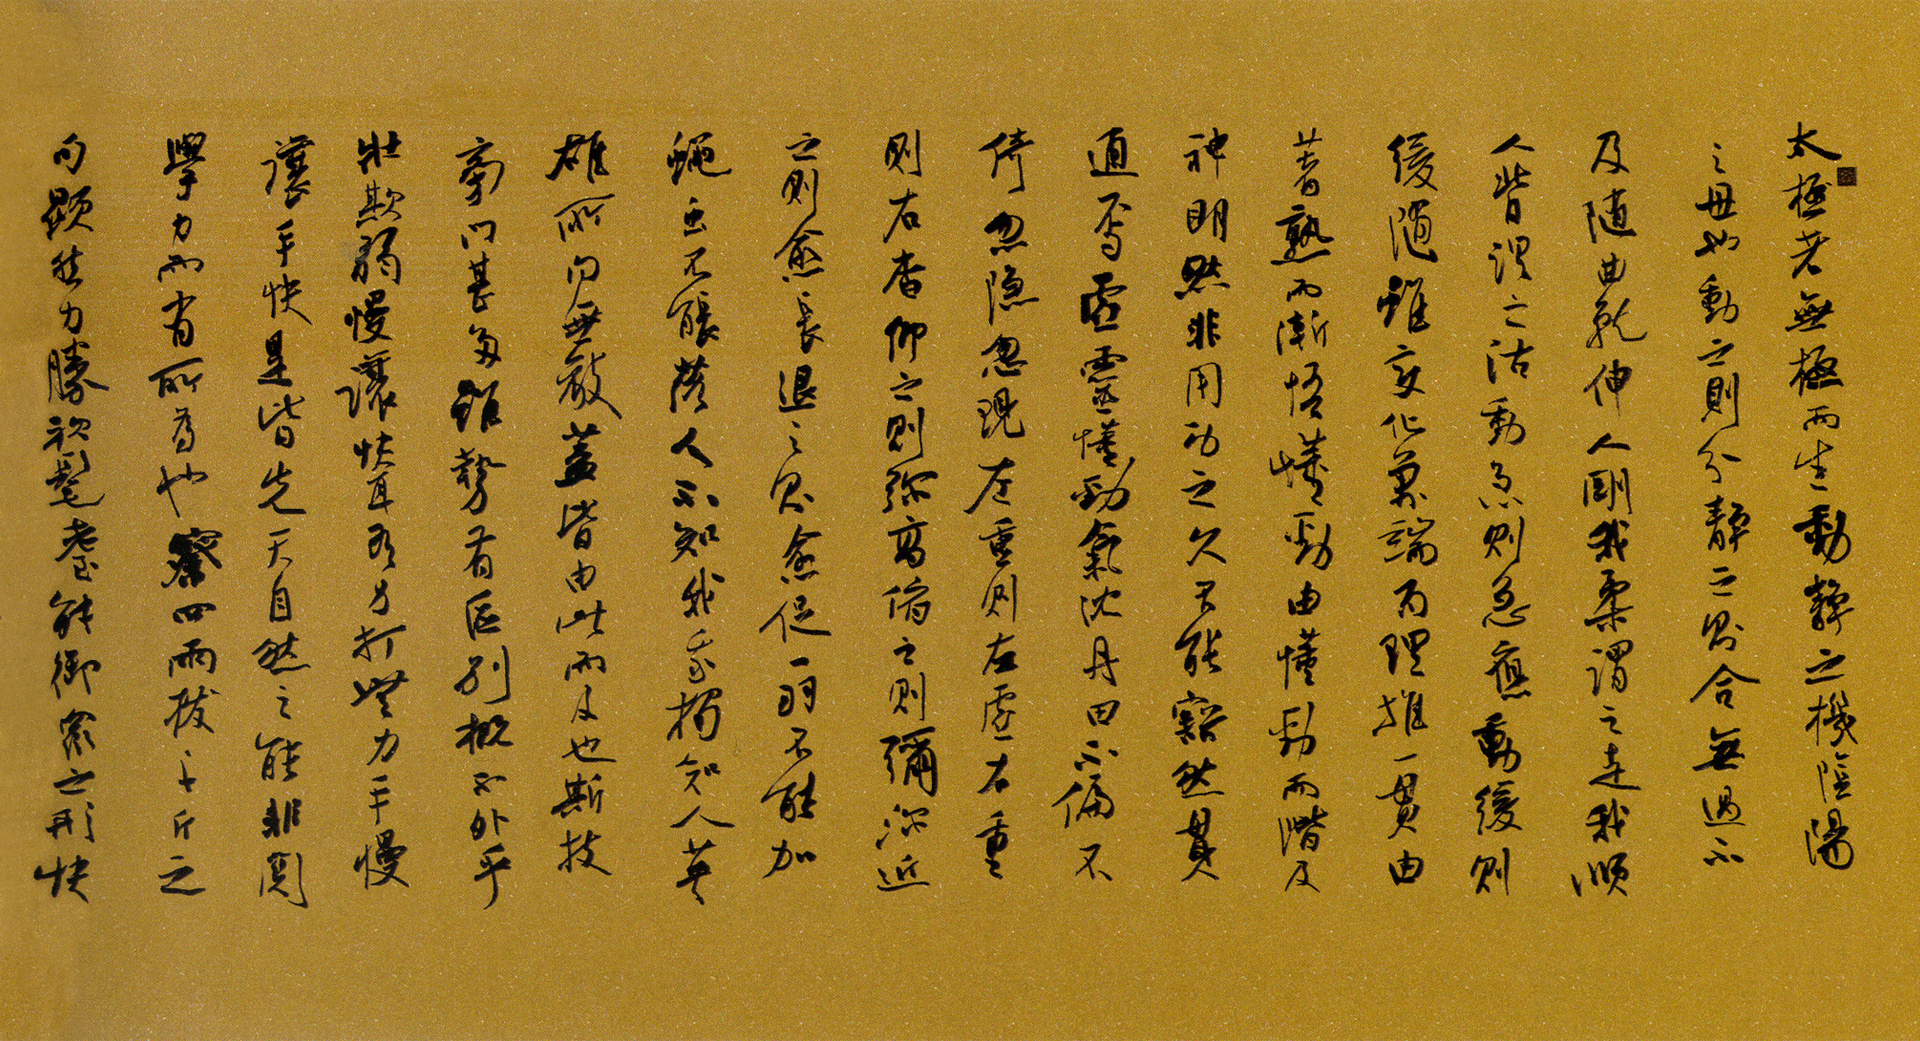 太極者無極而生動靜之機陰陽
之母也動之則分靜之則合無過不
及隨曲就伸人剛我柔謂之走我順
人背謂之沾動急則急應動緩則
緩隨雖變化萬端而理唯一貫由
著熟而漸悟懂勁由懂勁而階及
神明然非用功之久不能豁然貫
通焉虛靈懂勁氣沈丹田不偏不
倚忽隱忽現左重則左虛右重
則右杳仰之則彌高俯之則彌深進
之則愈長退之則愈促一羽不能加
蠅虫不能落人不知我我獨知人英
雄所向無敵蓋皆由此而及也斯技
旁門甚多雖勢有區別概不外乎
壯欺弱慢讓快耳有力打無力手慢
讓手快是皆先天自然之能非關
學力而有所為也察四兩撥千斤之
句顯非力勝視耄耋能御眾之形快